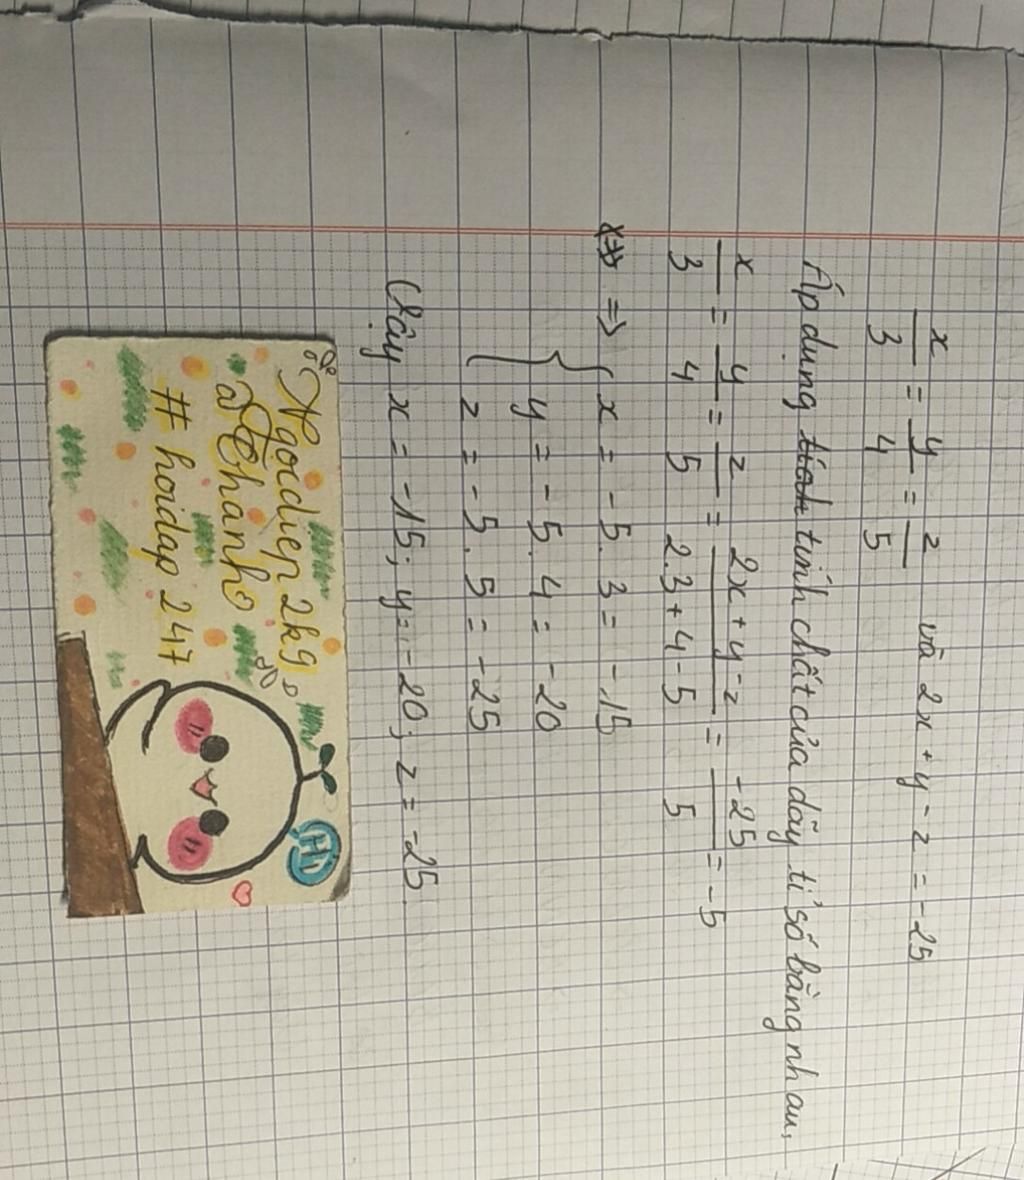 x/3 = y/4 = z/5 và 2x + y - z = -25
Áp dụng tính chất của dãy tỉ số bằng nhau,
x/3 = y/4 = z/5 = 2x + y - z/2.3 + 4 - 5 = -25/5 = -5
=> { x = -5. 3 = -15
y = -5. 4 = -20
z = -5. 5 = -25
Vậy x = -15; y = -20; z = -25.
Ngocdiep2kg
a Thanh
# hoidap 247
Hi